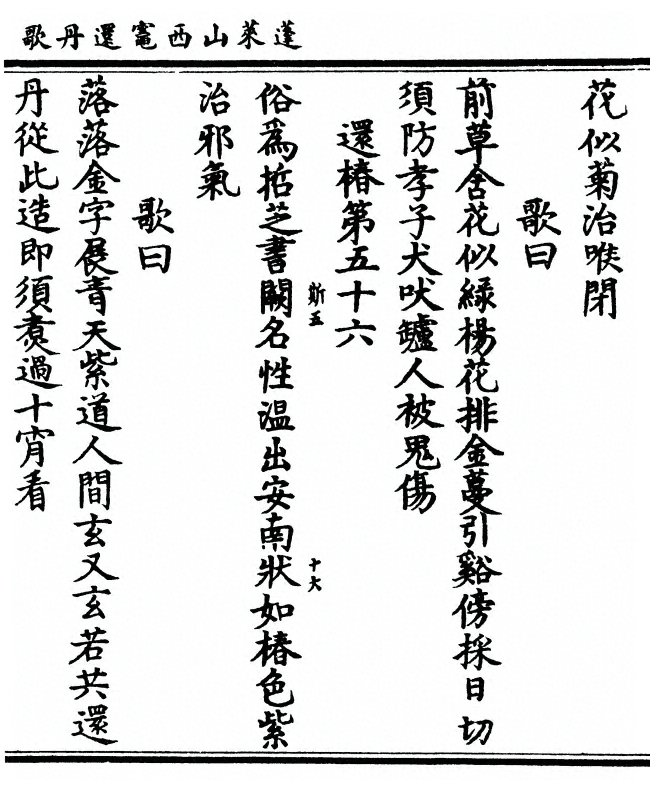 蓬萊山西竈還丹歌
花似菊治喉閉
歌曰
前草舍花似綠楊花排金蔓引谿傍採日切
須防孝子犬吠罏人被鬼傷
還椿第五十六
俗為哲芝書闕名性溫出安南狀如椿色紫
斯五
十六
治邪氣
歌曰
落落金字展青天紫道人間玄又玄若共還
丹從此造即須煑過十宵看